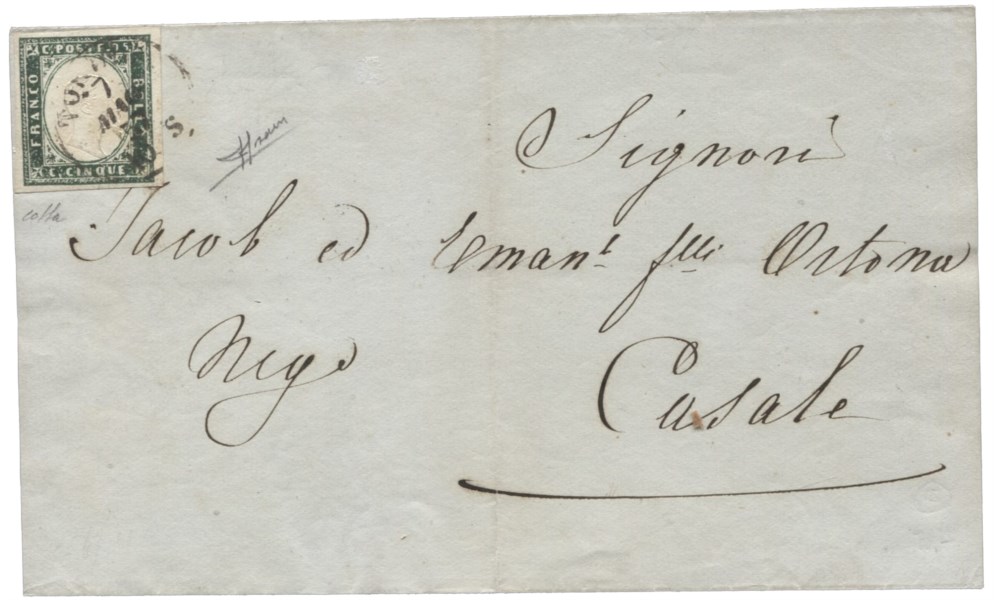 C. POSTE 5
FRANCO
BOLLO
C. CINQUE 5
TORINO
7
MAG
S.
colla
Signori
Jacob ed Eman.l f.lli Ortona
Neg.
Casale